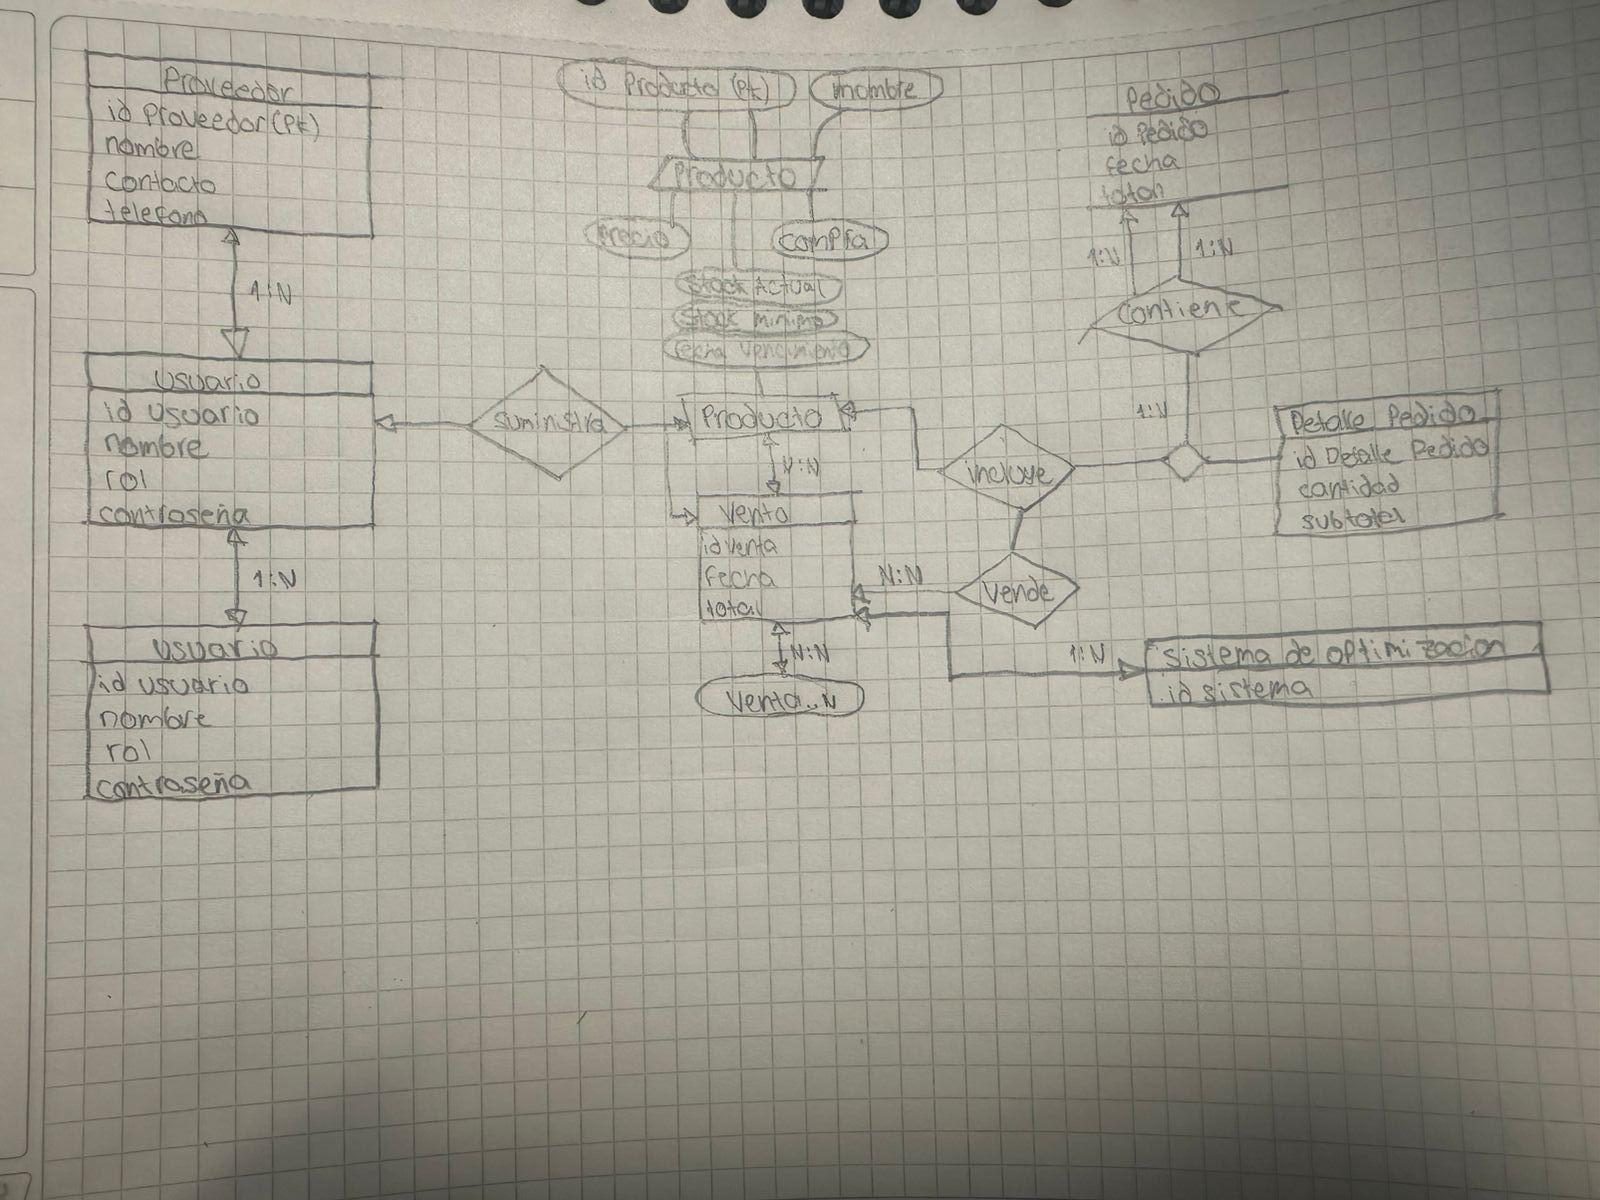 Proveedor
id Proveedor (PK)
nombre
contacto
telefono
1:N
Usuario
id usuario
nombre
rol
contraseña
1:N
Usuario
id usuario
nombre
rol
contraseña
id Producto (PK)
nombre
Producto
precio
compra
Stock Actual
Stock minimo
fecha vencimiento
suministra
Producto
N:N
Venta
id venta
fecha
total
N:N
Venta..N
Pedido
id Pedido
fecha
total
1:N
1:N
contiene
1:N
Detalle Pedido
id Detalle Pedido
cantidad
subtotal
incluye
N:N
Vende
1:N
sistema de optimizacion
id sistema